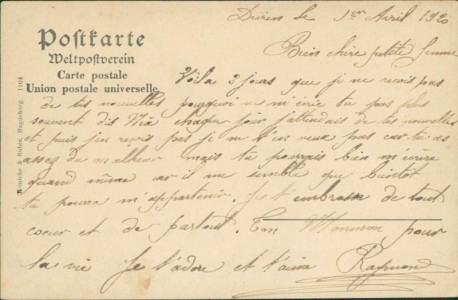 Düren le 1er Avril 1920
Postkarte
Weltpostverein
Carte postale
Union postale universelle
Bien chère petite femme
Voila 3 jours que je ne recois pas
de tes nouvelles pourquoi ne m'écrit tu pas plus
souvent dis Mia chaque jour j'attendais de tes nouvelles
et puis jen recois pas je ne t'en veux pas car tu as
asses du malheur mais tu pourrais bien m'écrire
quand même car il me semble que bientot
tu pourra m'appartenir. Je t'embrasse de tout
coeur et de partout. Ton Monsieur pour
la vie Je t'adore et t'aime Raymond